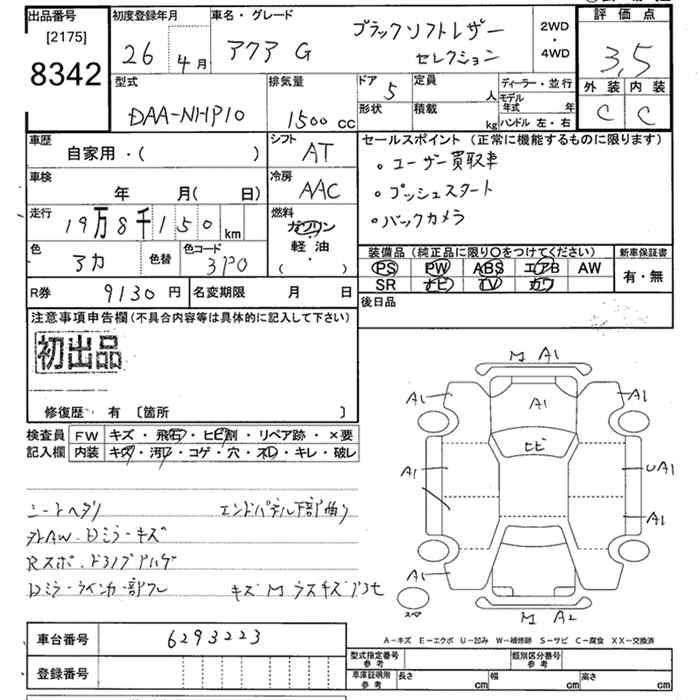 出品番号
[2175]
8342
初度登録年月
26 4月
車名・グレード
アクア G
ブラックソフトレザー
セレクション
2WD
・
4WD
評価点
3.5
外装 内装
C C
型式
DAA-NHP10
排気量
1500 cc
ドア
5
定員
人
形状
積載
kg
ディーラー・並行
モデル
年式 年
ハンドル 左・右
車歴
自家用・( )
シフト
AT
車検
年 月( 日)
冷房
AAC
走行
19万8千150 km
燃料
ガソリン
軽・油
( ・ )
色
アカ
色替
色コード
3P0
セールスポイント (正常に機能するものに限ります)
・ユーザー買取車
・プッシュスタート
・バックカメラ
装備品 (純正品に限り〇をつけてください)
PS PW ABS エアB AW
SR ナビ TV カワ
新車保証書
有・無
R券 9130円
名変期限 月 日
後日品
注意事項申告欄(不具合内容等は具体的に記入して下さい)
初出品
修復歴・ 有 〔箇所 〕
検査員
記入欄
FW キズ・飛石・ヒビ割・リペア跡・×要
内装 キズ・汚レ・コゲ・穴・スレ・キレ・破レ
シートヘタリ
エンドパネル下部曲り
外AW・Dミラーキズ
Dミラーウインカー部ワレ
M A1
A1
A1
A1
ヒビ
A1
UA1
A1
A1
A1
スペ
M A2
A-キズ E-エクボ U-凹み W-補修跡 S-サビ C-腐食 XX-交換済
車台番号 6293223
登録番号
型式指定番号
参考
類別区分番号
参考
車庫証明用
参考
長さ cm
幅 cm
高さ cm